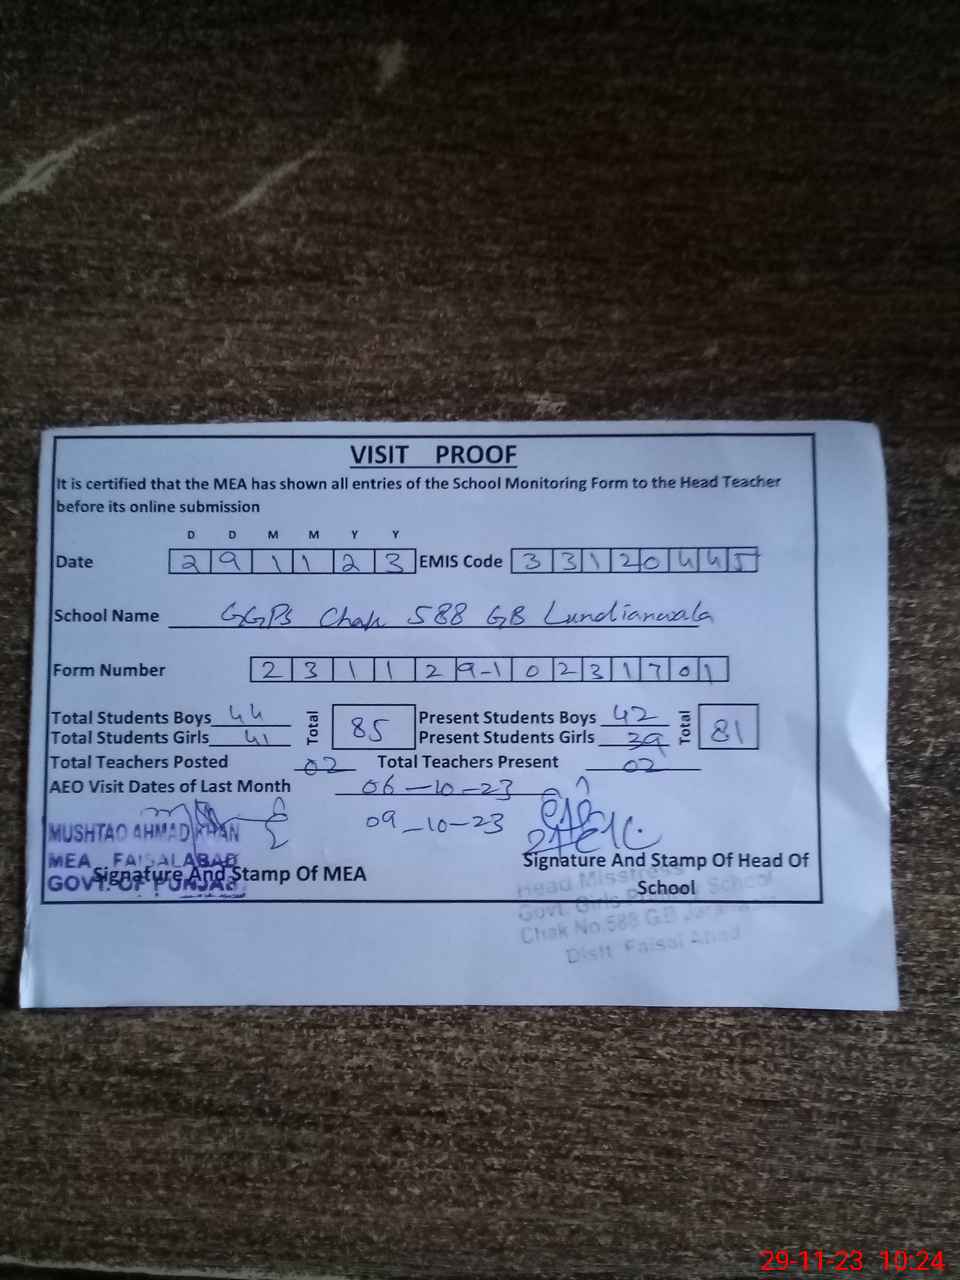 VISIT PROOF
It is certified that the MEA has shown all entries of the School Monitoring Form to the Head Teacher
before its online submission
D D M M Y Y
Date 2 9 1 1 2 3 EMIS Code 3 3 1 2 0 4 4 5
School Name GGPS Chak 588 GB Lundianwala
Form Number 2 3 1 1 2 9-1 0 2 3 1 7 0 1
Total Students Boys 44 Total 85 Present Students Boys 42 Total 81
Total Students Girls 41 Present Students Girls 39
Total Teachers Posted 02 Total Teachers Present 02
AEO Visit Dates of Last Month 06-10-23
09-10-23
MUSHTAQ AHMAD KHAN
MEA FAISALABAD
GOVT. OF PUNJAB
Signature And Stamp Of MEA
Signature And Stamp Of Head Of
School
Head Misstress
Govt. Girls Primary School
Chak No.588 G.B
Distt Faisal Abad
29-11-23 10:24